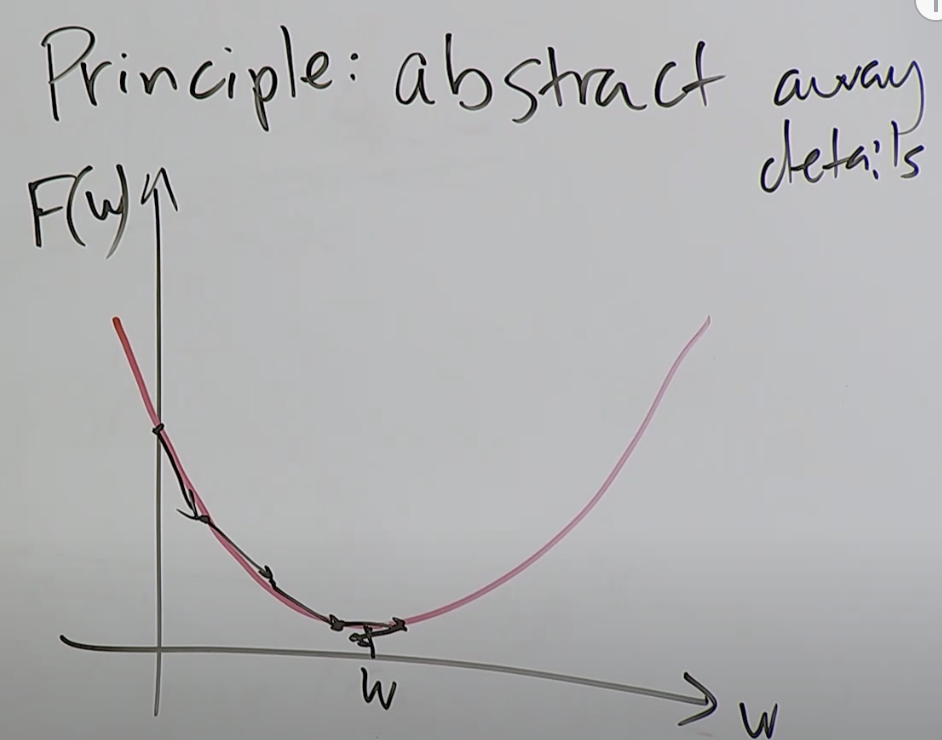 Principle: abstract away
details
F(w)
w
w